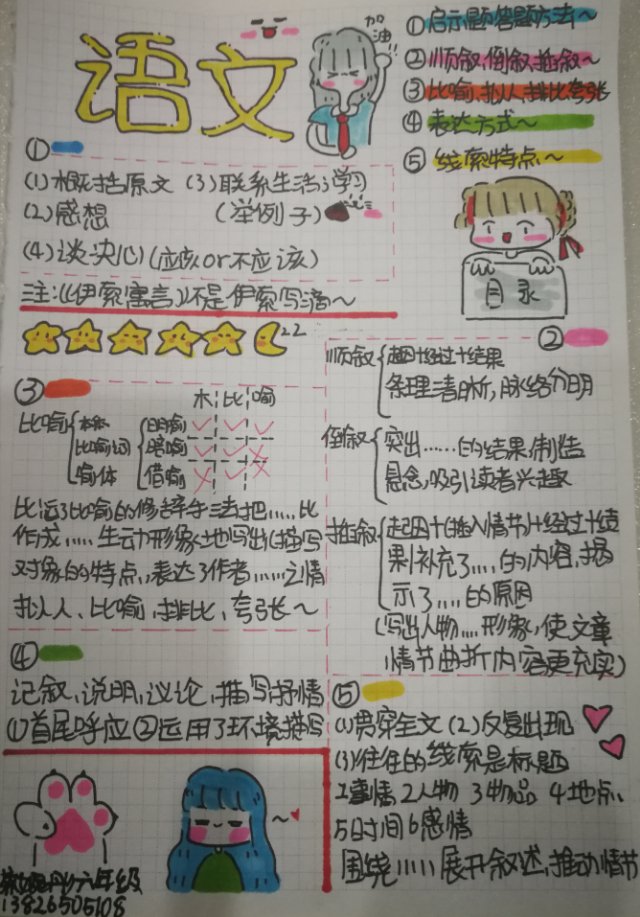 语文
加油!!
①启示题答题方法～
②顺叙,倒叙,插叙～
③比喻,拟人,排比夸张
④表达方式～
⑤线索特点～
目录
①
(1)概括原文 (3)联系生活,学习
(2)感想 (举例子)
(4)谈决心(应该or不应该)
注:《伊索寓言》不是伊索写滴～
②
顺叙{起因+经过+结果
条理清晰,脉络分明
倒叙{突出……的结果,制造
悬念,吸引读者兴趣
插叙{起因+(插入情节)+经过+结
果补充了……的内容,揭
示了……的原因
(写出人物……形象,使文章
情节曲折内容更充实)
③
本 比 喻
比喻{本体 {明喻 ✓ ✓ ✓
比喻词 暗喻 ✓ ✓ ✗
喻体 借喻 ✗ ✗ ✓
比运了比喻的修辞手法把……比
作成……生动形象地写出(描写
对象的特点,表达了作者……之情
拟人、比喻,排比,夸张～
④
记叙,说明,议论,描写抒情
①首尾呼应 ②运用了环境描写
⑤
(1)贯穿全文 (2)反复出现
(3)往往的线索是标题
1事情 2人物 3物品 4地点
5时间 6感情
围绕……展开叙述,推动情节
六年级
13826505108